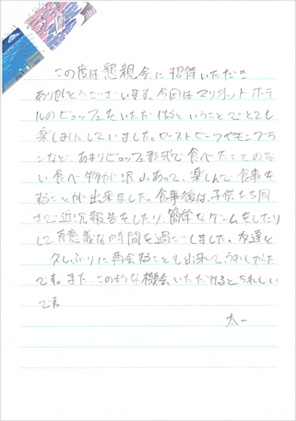 この度は懇親会に招待いただき
ありがとうございます。今回はマリオットホテ
ルのビュッフェをいただけるということでとても
楽しみにしていました。ローストビーフやモンブラ
ンなど、あまりビュッフェ形式で食べたことのな
い食べ物が沢山あって、楽しんで食事を
することが出来ました。食事後は、子供たち同
士で近況報告をしたり、簡単なゲームをしたり
して有意義な時間を過ごしました。友達と
久しぶりに再会することも出来て、うれしかった
です。また、このような機会いただけるとうれしい
です。
太一